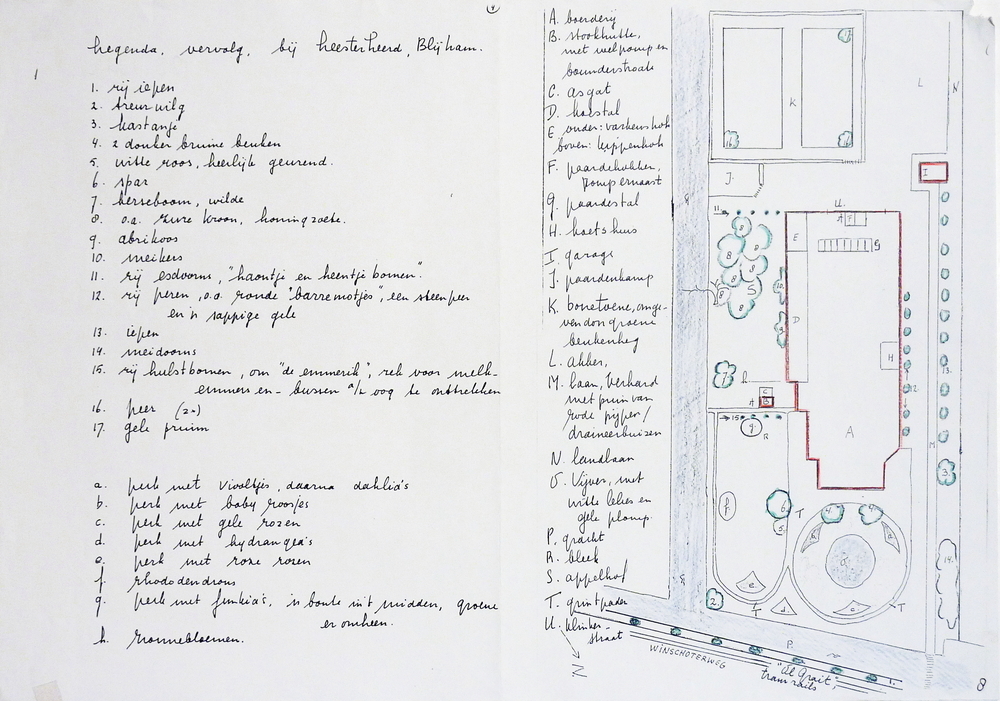 Legenda, vervolg, bij heesterheerd, Blijham.
1. rij iepen
2. treurwilg
3. kastanje
4. 2 donker bruine beuken
5. witte roos, heerlijk geurend.
6. spar
7. kerseboom, wilde
8. o.a. zure kroon, honingzoete.
9. abrikoos
10. meikers
11. rij esdoorns, "haontje en heentje bomen".
12. rij peren, o.a. ronde "barremotjes", een steenpeer
en 'n sappige gele
13. iepen
14. meidoorns
15. rij hulstbomen, om "de emmerik", rek voor melk-
emmers en - bussen a/h oog te onttrekken
16. peer (2x)
17. gele pruim
a. perk met viooltjes, daarna dahlia's
b. perk met baby roosjes
c. perk met gele rozen
d. perk met hydrangea's
e. perk met roze rozen
f. rhododendrons
g. perk met funkia's, 'n bonte in 't midden, groene
er omheen.
h. zonnebloemen.
A. boerderij
B. stookhutte,
met welpomp en
boenderstraate
C. asgat
D. koestal
E onder: varkenshok
boven: kippenhok
F. paardehokken,
pomp ernaast
G. paardestal
H. koetshuis
I garage
J. paardenkamp
K. bonetoene, omge-
ven door groene
beukenheg
L. akker,
M. laan, verhard
met puin van
rode pijpen/
draineerbuizen
N. landlaan
O. Vijver, met
witte lelies en
gele plomp.
P. gracht
R. bleek
S. appelhof
T. grintpaden
U. klinker-
straat
N
WINSCHOTERWEG
"Ol Grait",
tramrails
8